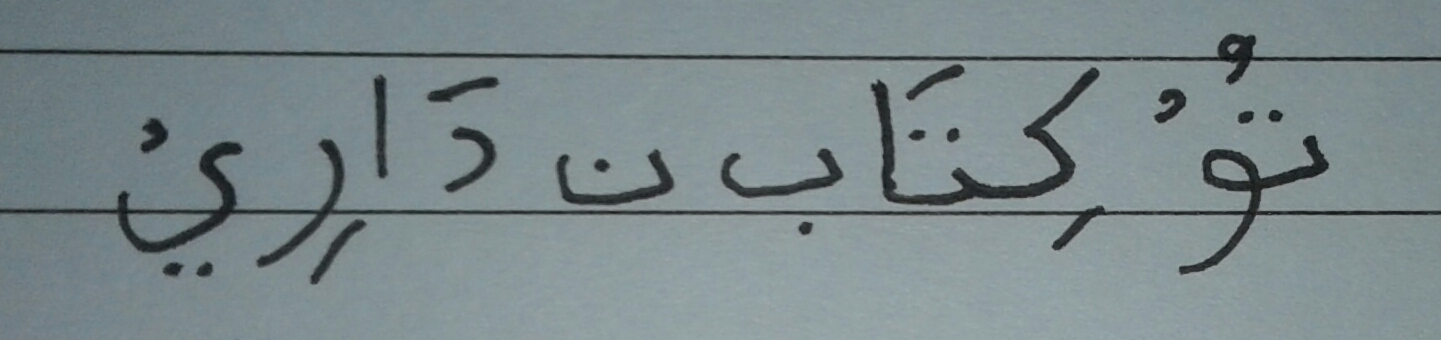 تُوْ كِتَاب ن دَارِيْ